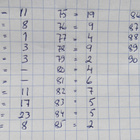 - 11 75 - 19 86
= 8 76 = 4 87
= 1 77 = 4 88
= 3 78 = 9 89
= 3 79 = 2 90
= - 80 = 4
= - 81 = 6
= 11 82 = 7
= 17 83 = 5
= 23 84 = 5
= 8 85 = 2